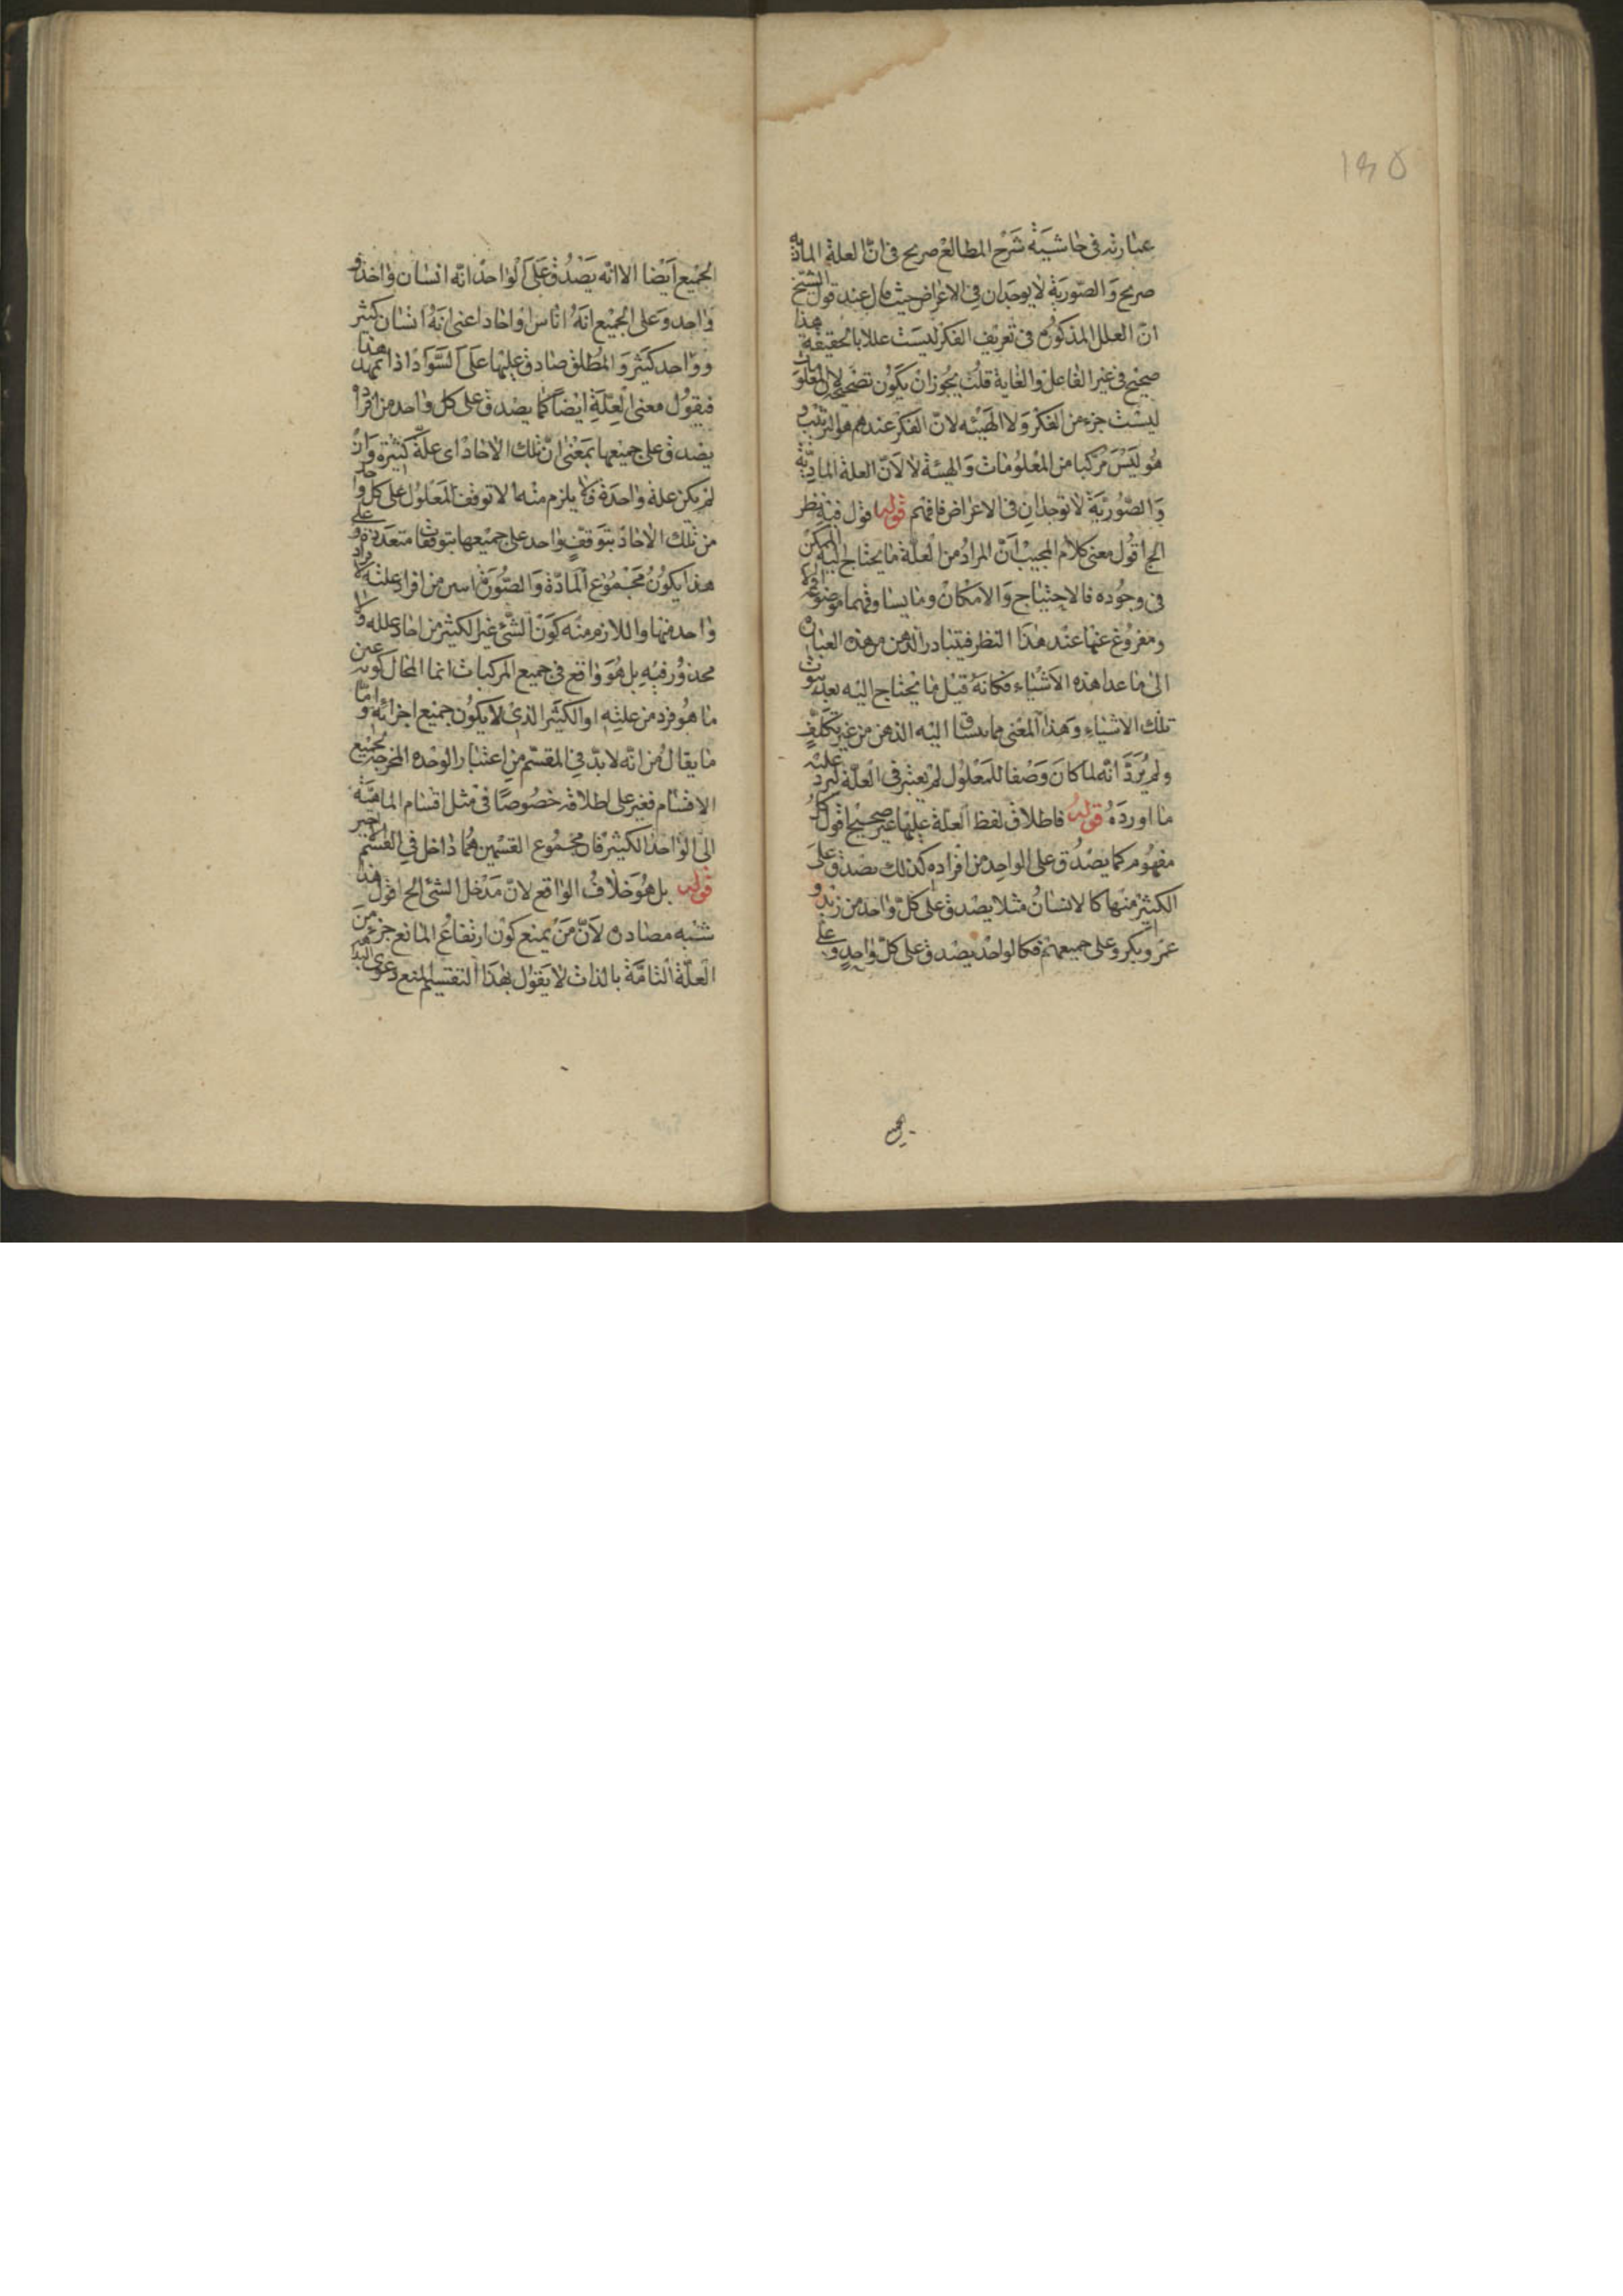 ١٣٥
عبارته فى حاشية شرح المطالع صريح فى ان العلة المادية
صريح والصورية لا يوجدان فى الاعراض حيث قال عند قول الشيخ
ان العلل المذكورة فى تعريف الفكر ليست عللا بالحقيقة هذا
صحيح فى غير الفاعل والغاية قلت يجوز ان يكون لان المعلومات
ليست جزء من الفكر ولا الهيئه لان الفكر عندهم هو الترتيب و
هو ليس مركبا من المعلومات والهيئة لا لان العلة المادية
والصورية لا توجدان فى الاعراض فافهم قوله فيه نظر
الخ اقول معنى كلام المجيب ان المراد من العلة ما يحتاج اليه الممكن
فى وجوده فالاحتياج والامكان وما يساوقهما
ومفروغ عنها عند هذا النظر فيتبادر الذهن من هذه العبارة
الى ما عدا هذه الاشياء فكانه قيل ما يحتاج اليه بعد ثبوت
تلك الاشياء وهذا المعنى مما ينساق اليه الذهن من غير تكلف
ولم يرد انه لما كان وصفا للمعلول لم يعتبر فى العلة ليرد عليه
ما اورده قوله فاطلاق لفظ العلة عليها غير صحيح اقول كل
مفهوم كما يصدق على الواحد من افراده كذلك يصدق على
الكثير منها كالانسان مثلا يصدق على كل واحد من زيد و
عمرو وبكر وعلى جميعهم فكما الواحد يصدق على كل واحد وعلى
الجميع ايضا الا انه يصدق على الواحد انه انسان واحد و
واحد وعلى الجميع انه اناس او احاد اعنى انه انسان كثير
وواحد كثير والمطلق صادق عليها على السواء اذا تمهد هذا
فيقول معنى العلة ايضا كما يصدق على كل واحد من افراده
يصدق على جميعها بمعنى ان تلك الاحاد اى علة كثيرة وان
لم يكن علة واحدة فلا يلزم منه الا توقف المعلول على كل واحد
من تلك الاحاد بتوقف واحد على جميعها بتوقفات متعددة وعلى
هذا يكون مجموع المادة والصورة من افراد علته لا
واحد منها واللازم منه كون الشئ غير الكثير من احاد علله ولا
محذور فيه بل هو واقع فى جميع المركبات انما المحال كونه عين
ما هو فرد من علته او الكثير الذى لا يكون جميع اجزائه واما
ما يقال من انه لا بد فى المقسم من اعتبار الوحدة المخرجة لجميع
الاقسام فغير على اطلاقه خصوصا فى مثل اقسام الماهية
الى الواحد الكثير فان مجموع القسمين هما داخل فى القسم الاخير
قوله بل هو خلاف الواقع لان مدخل الشئ الخ اقول هذا
شبه مصادره لان من يمنع كون ارتفاع المانع جزء من
العلة التامة بالذات لا يقول بهذا التقسيم لمنع دعوى